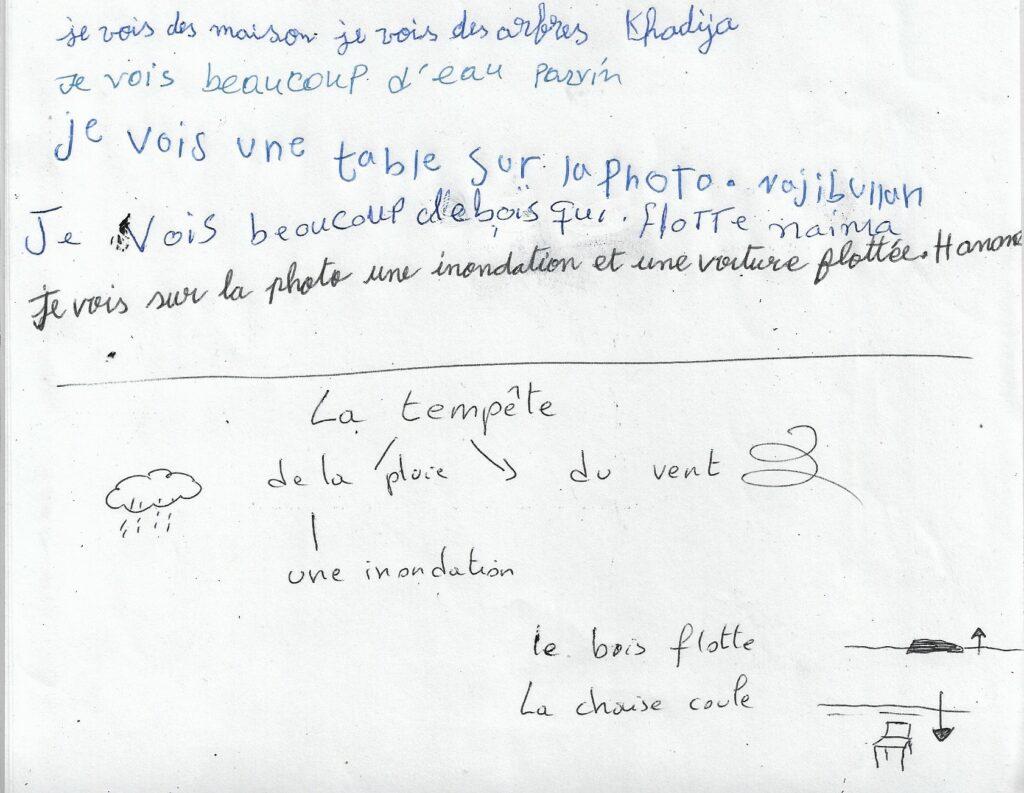 je vois des maison je vois des arbres Khadija
Je vois beaucoup d'eau Parvin
je vois une table sur la photo. najibullah
Je Vois beaucoup de bois qui flotte naima
Je vois sur la photo une inondation et une voiture flottée. Hanane
La tempête
de la pluie du vent
une inondation
le bois flotte
La chaise coule